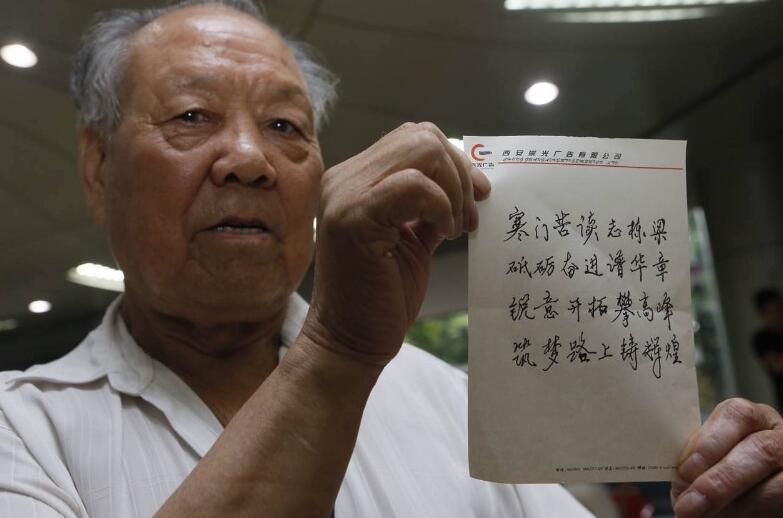 西安晨光广告有限公司
寒门苦读志栋梁
砥砺奋进谱华章
锐意开拓攀高峰
筑梦路上铸辉煌